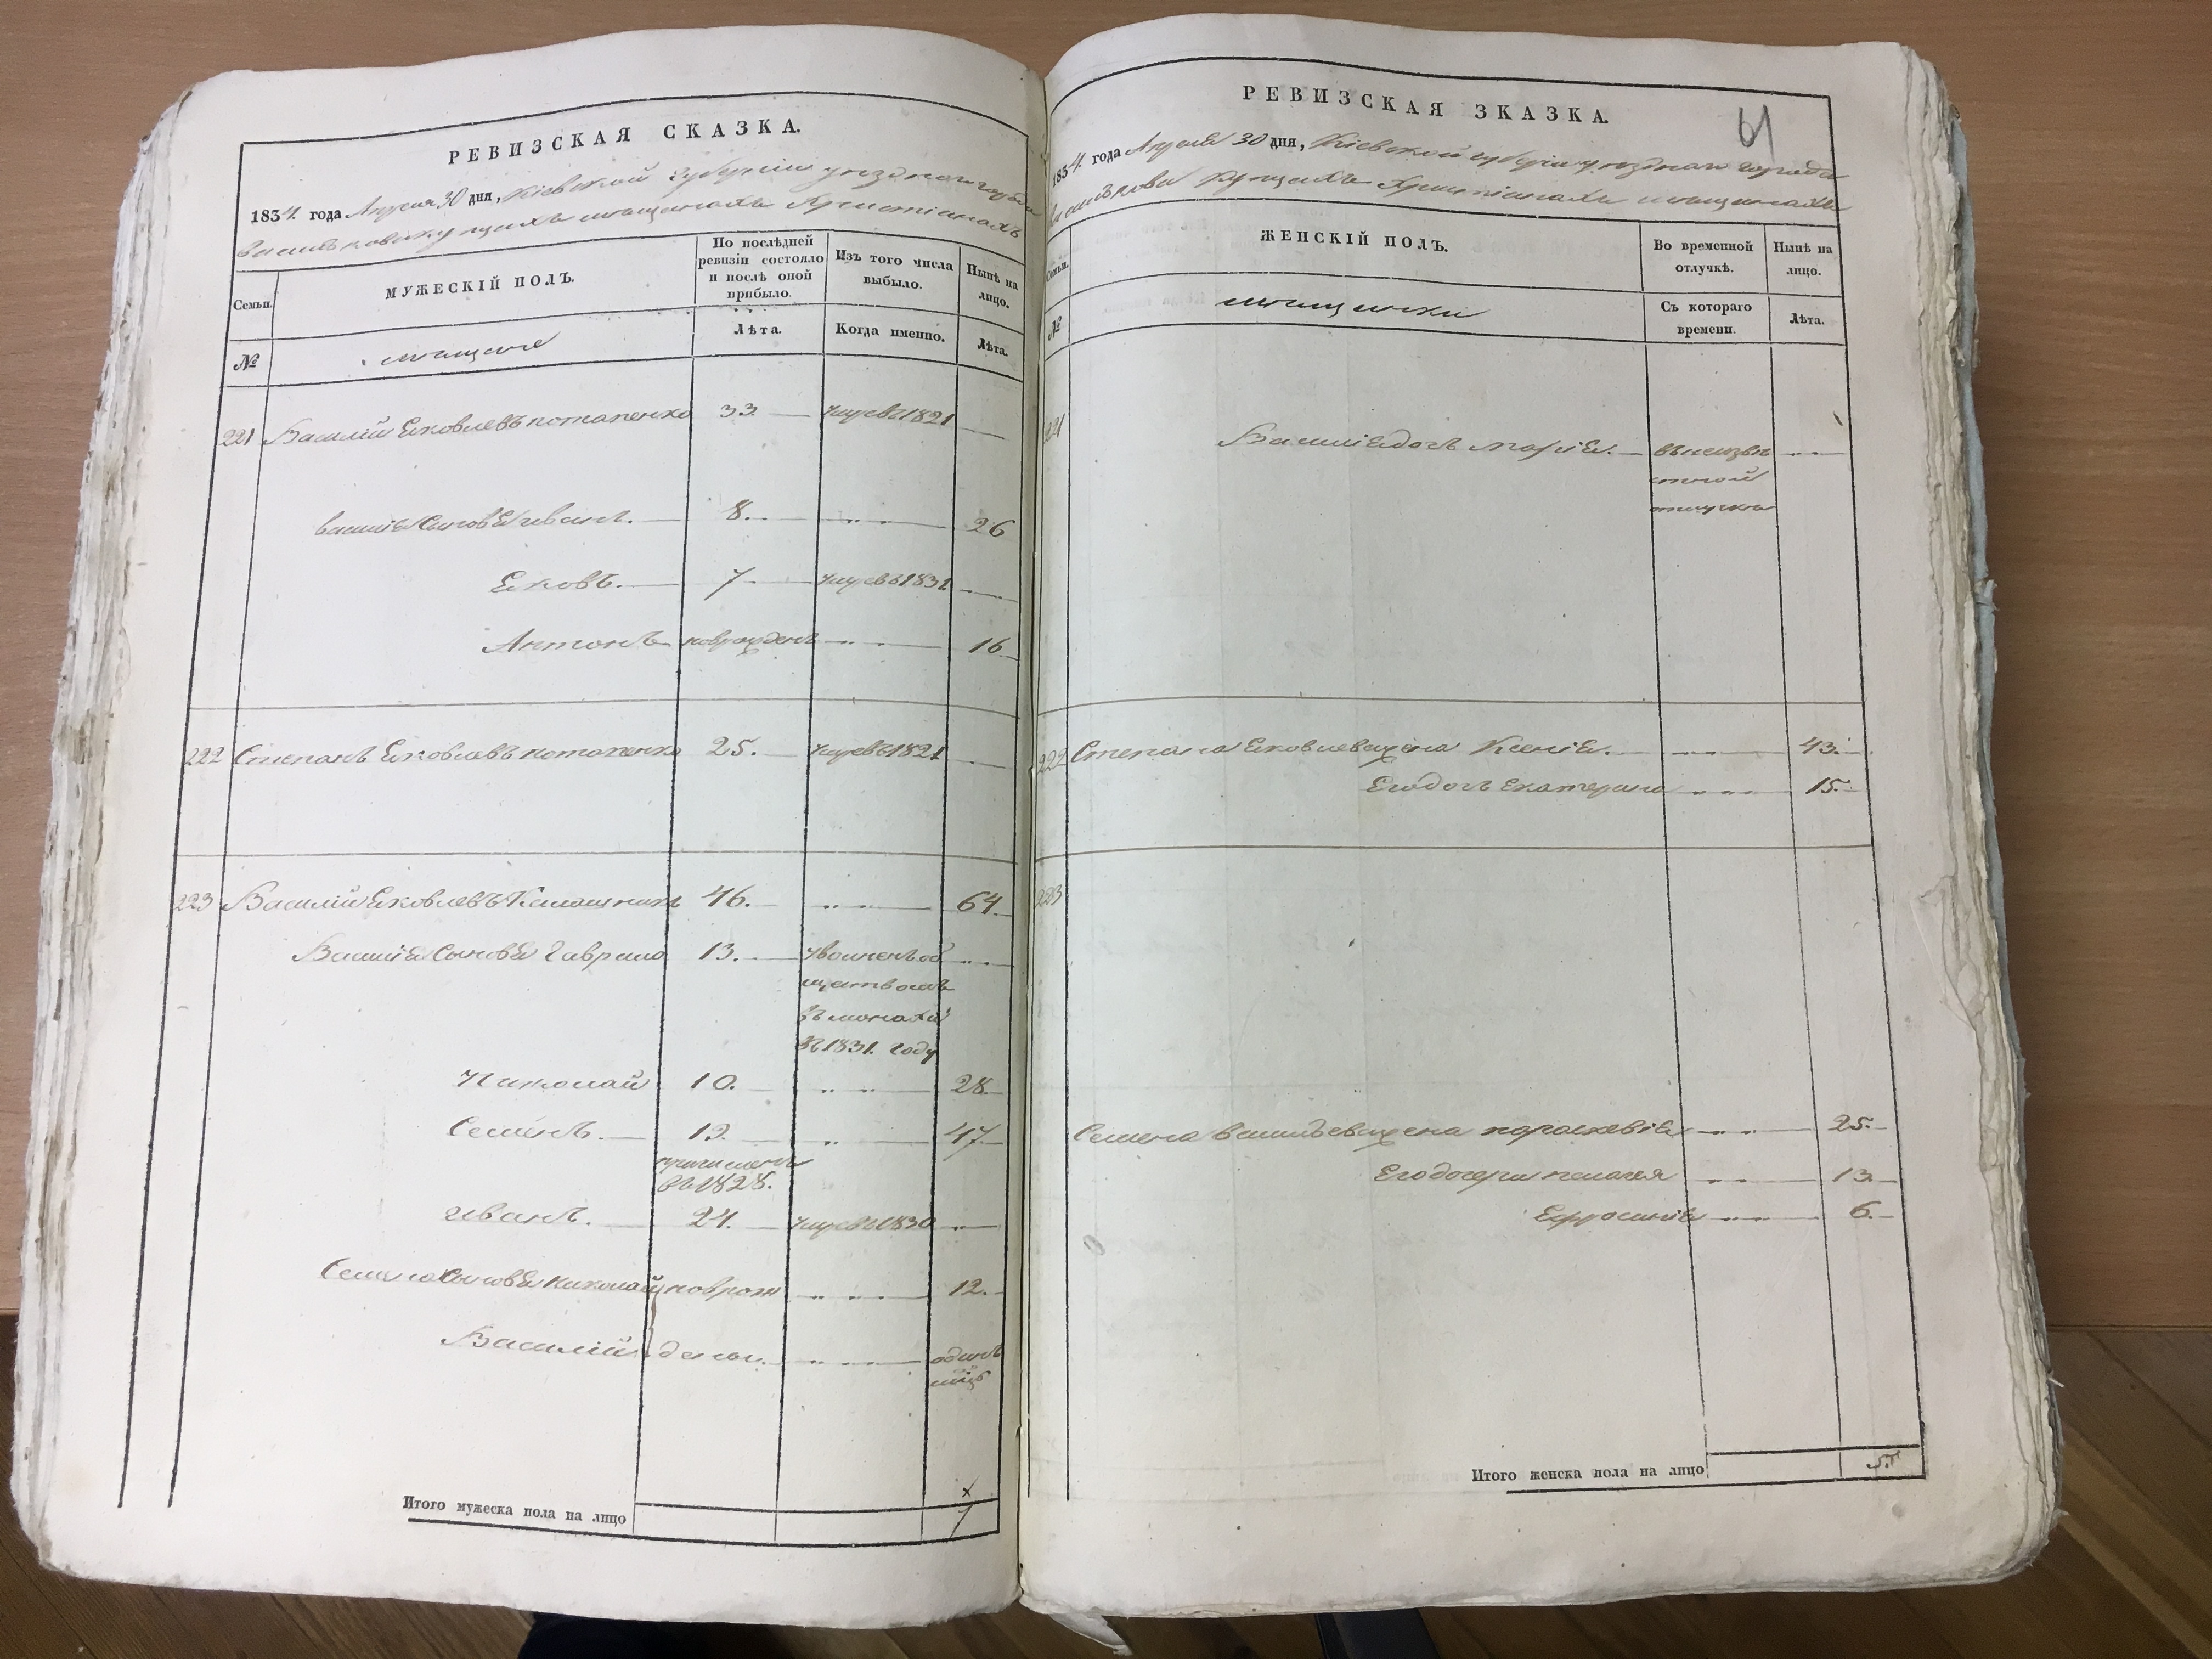 РЕВИЗСКАЯ СКАЗКА.
1834. года Апреля 30 дня, Кіевской губерніи уезднаго города
Василькова купцахъ мещанахъ Християнахъ
Семьи.
МУЖЕСКІЙ ПОЛЪ.
По послѣдней ревизіи состояло и послѣ оной прибыло.
Изъ того числа выбыло.
Нынѣ на лицо.
№
мещане
Лѣта.
Когда именно.
Лѣта.
221 Василий Єковлевъ потапенко 33. умревъ1821
Василіє Сыновє иванъ. 8. 26
Єковъ. 7 умревъ1831
Антонъ новрожденъ 16
222 Степанъ Єковлевъ потапенко 25. умревъ1821
223 Василий Єковлевъ 46. 64.
Василіє Сыновє Гаврило 13. уволненъ об
ществомъ
въ монахи
въ 1831. году
Николай 10. 28.
Семенъ. 47
причисленъ
въ 1828.
иванъ. 24. умревъ1830
Семена Сыновє николай новрож 12.
Василий дены. одинъ
мц
Итого мужеска пола на лицо 7
61
РЕВИЗСКАЯ ЗКАЗКА.
1834. года Апреля 30 дня, Кіевской губерніи уезднаго города
Василькова Купцахъ Християнахъ мещанахъ
Семьи.
ЖЕНСКІЙ ПОЛЪ.
Во временной отлучкѣ.
Нынѣ на лицо.
№
мещанки
Съ котораго времени.
Лѣта.
221
Василіє дочь маріє. въ неизве
стной
отлучки
222 Степана Єковлева жена Ксеніє. 43.
Єго дочь Екатерина 15.
223
Семена Васильева жена параскевіє 25.
Єго дочери пелагея 13.
Ефросиніє 6.
Итого женска пола на лицо 5.